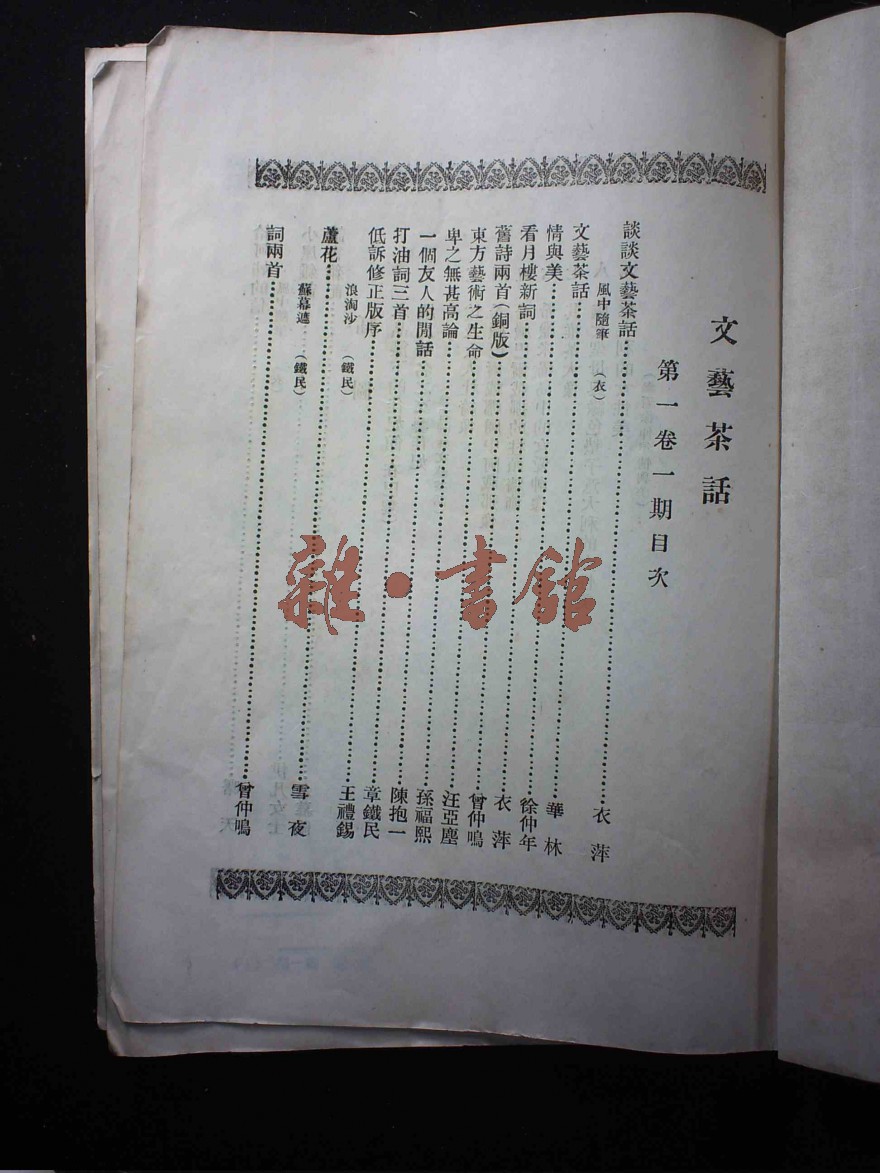 文藝茶話
第一卷一期目次
談談文藝茶話……衣萍
風中隨筆（衣）
文藝茶話……華林
情與美……徐仲年
看月樓新詞……衣萍
舊詩兩首（銅版）……曾仲鳴
東方藝術之生命……汪亞塵
卑之無甚高論……孫福熙
一個友人的閒話……陳抱一
打油詞三首……章鐵民
低訴修正版序……王禮錫
浪淘沙（鐵民）
蘆花……雪夜
蘇幕遮（鐵民）
詞兩首……曾仲鳴
雜·書館